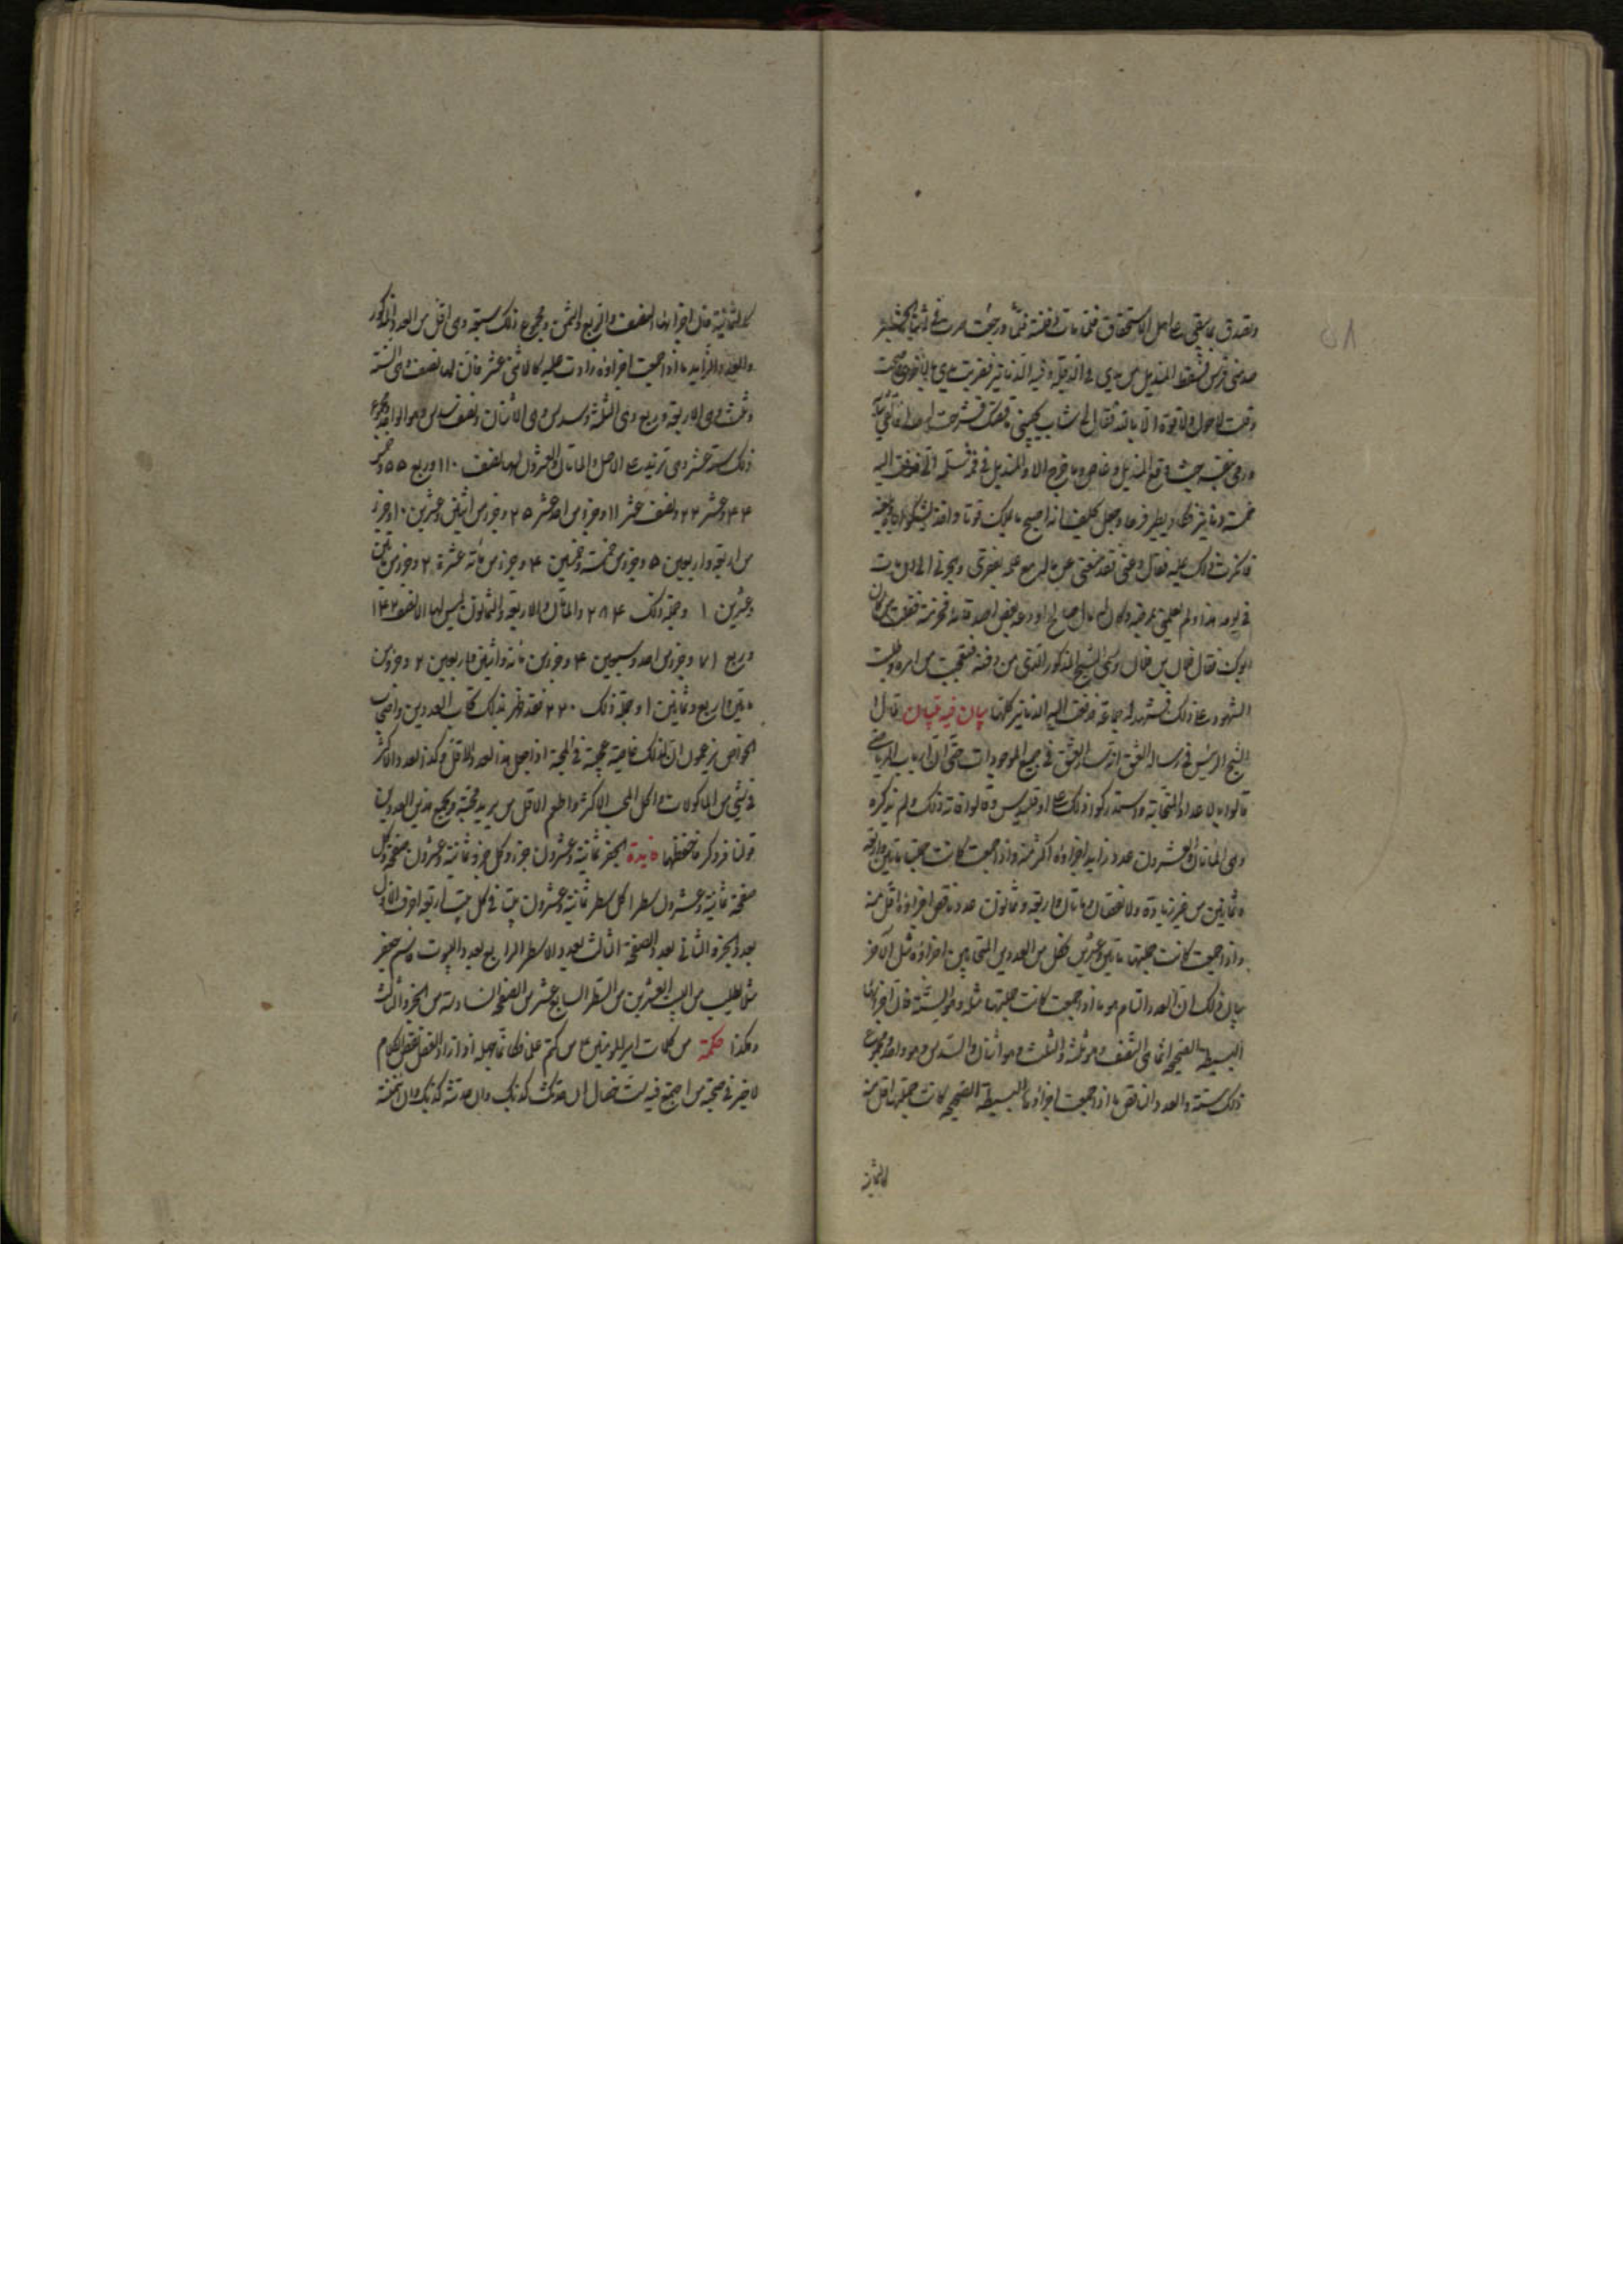 وتصدق بما يبقى على اهل الاستحقاق فلما مات دفنته فلما ورجعت
فسقط المنديل من يدي في الدجلة وفيه الدنانير فضربت يدي بالاخرى وصحت
وقلت لا حول ولا قوة الا بالله فقال لي شاب قصتك فشرحت
ورمى بنفسه حيث وقع المنديل وغاص وما خرج الا والمنديل في فمه سلمه الي فدفعت اليه
خمسة دنانير فكاد يطير فرحا وجعل يحلف انه اصبح ما يملك قوتا واخذ يشكو
فانكرت ذلك عليه فقال دعني فقد منعني عن ماله مع علمه بفقري
في يومه هذا ولم يعلمني بمرضه وكان له مال صالح اودعه بعض اصدقائه فقلت من كان
ابوك فقال فلان بن فلان وسمى الشيخ المذكور الذي من دفنه فتعجبت من امره وطلبت
الشهود على ذلك فشهد له جماعة فدفعت اليه الدنانير كلها بيان فيه تبيان قال
الشيخ الرئيس في رسالة العشق في جميع الموجودات حتى ان ارباب الرياضي
قالوا بالاعداد المتحابة واستدركوا ذلك على اوقليدس وقالوا فاته ذلك ولم يذكره
وهي المائتان والعشرون عدد زايد اجزاؤه اكثر منه واذا جمعت كانت جملتها مائتين واربعة
وثمانين من غير زيادة ولا نقصان ومائتان واربعة وثمانون عدد ناقص اجزاؤه اقل منه
واذا جمعت كانت جملتها مائتين وعشرين فكل من العددين المتحابين اجزاؤه مثل الآخر
بيان ذلك ان العدد التام هو ما اذا جمعت كانت جملتها مثله وهو الستة فان اجزاءها
البسيطة الصحيحة انما هي النصف وهو ثلثة والثلث وهو اثنان والسدس وهو واحد ومجموع
ذلك ستة والعدد الناقص ما اذا جمعت اجزاؤه البسيطة الصحيحة كانت جملتها اقل منه
كالثمانية
كالثمانية فان اجزائها النصف والربع والثمن ومجموع ذلك سبعة وهي اقل من العدد المذكور
والعدد الزايد ما اذا جمعت اجزاؤه زادت عليه كالاثني عشر فان لها نصف وهي الستة
وثلث وهي الاربعة وربع وهي الثلثة وسدس وهي الاثنان ونصف سدس وهو الواحد ومجموع
ذلك ستة عشر وهي تزيد على الاصل والمائتان والعشرون لها نصف ١١٠ وربع ٥٥ وخمس
٤٤ وعشر ٢٢ ونصف عشر ١١ وجزء من احد عشر ٢٠ وجزء من اثنين وعشرين ١٠ وجزء
من اربعة واربعين ٥ وجزء من خمسة وخمسين ٤ وجزء من مائة وعشرة ٢ وجزء من مائتين
وعشرين ١ وجملة ذلك ٢٨٤ والمائتان والاربعة والثمانون ليس لها الا نصف ١٤٢
وربع ٧١ وجزء من احد وسبعين ٤ وجزء من مائة واثنين واربعين ٢ وجزء من
مائتين واربع وثمانين ١ وجملة ذلك ٢٢٠ فقد ظهر بذلك تحاب العددين واصحاب
الخواص يزعمون ان لذلك خاصية عجيبة في المحبة اذا جعل هذا العدد الاقل وكذا العدد الاكثر
في شيء من الماكولات واكل المحب الاكثر واطعم الاقل من يريد محبته ويجمع هذين العددين
قولنا فرد كر فاحفظها فايدة الجفر ثمانية وعشرون جزء وكل جزء ثمانية وعشرون صفحة وكل
صفحة ثمانية وعشرون سطرا وكل سطر ثمانية وعشرون بيتا في كل بيت اربعة احرف الاول
بعدد الجزء الثاني بعدد الصفحة الثالث بعدد الاسطر الرابع بعدد البيوت فاسم جعفر
مثلا يطلب من البيت العشرين من السطر السابع عشر من الصفحة السادسة من الجزء الثالث
وهكذا حكمة من كلمات امير المؤمنين من كتم علما فكانما جهله اذا زاد العقل نقص الكلام
لا خير في صحبة من اجتمع فيه ست خصال ان حدثك كذبك وان حدثته كذبك وان ائتمنته